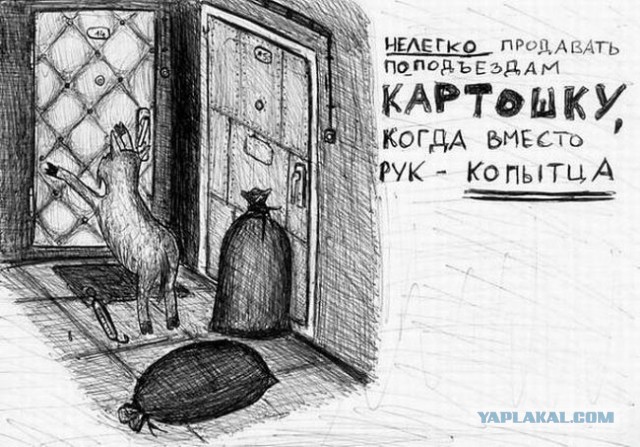 НЕЛЕГКО ПРОДАВАТЬ
ПО ПОДЪЕЗДАМ
КАРТОШКУ,
КОГДА ВМЕСТО
РУК - КОПЫТЦА
YAPLAKAL.COM